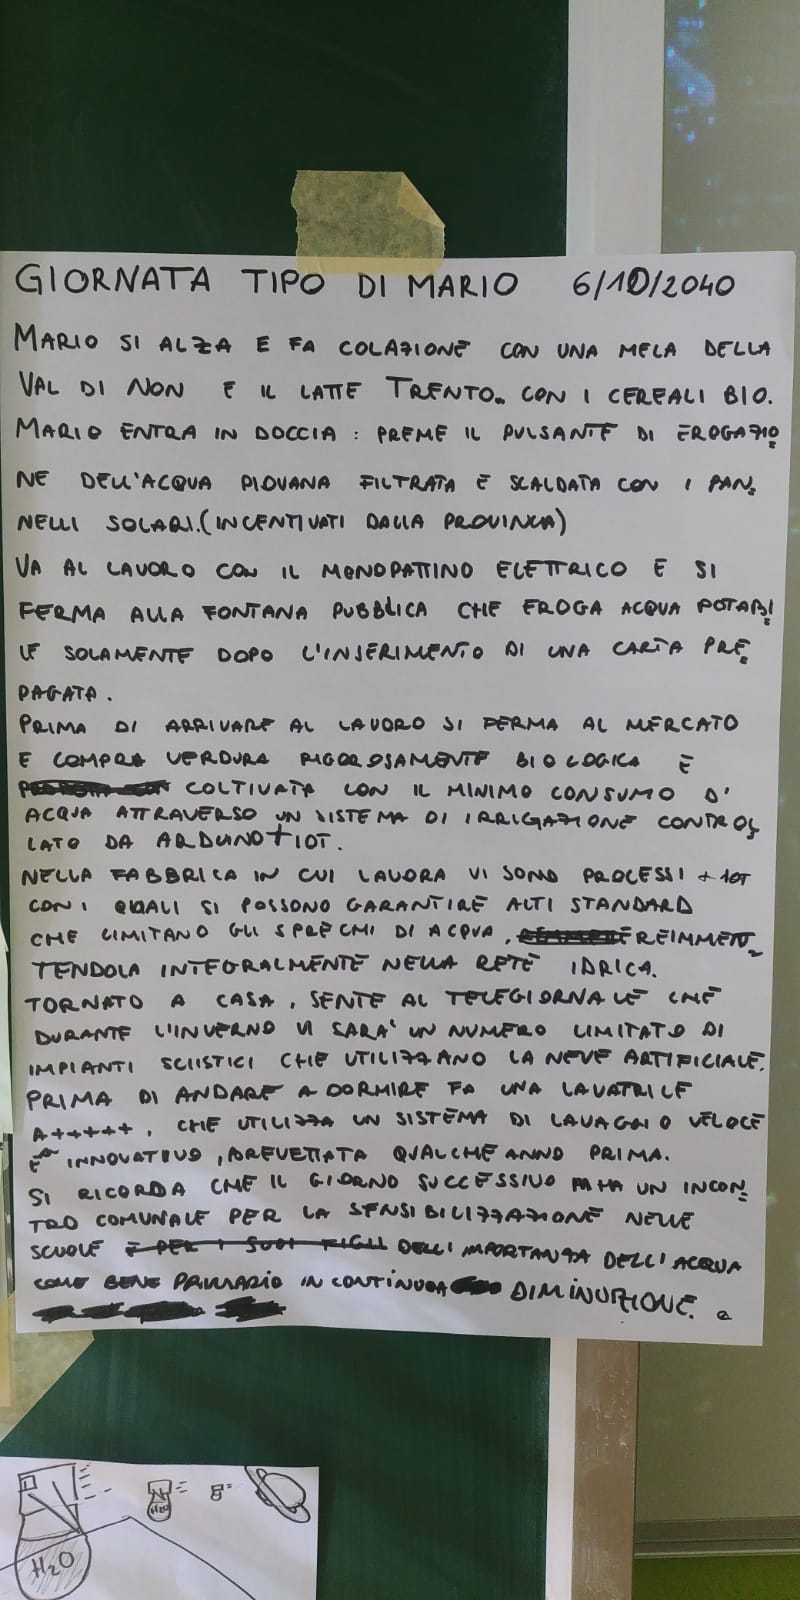 GIORNATA TIPO DI MARIO 6/10/2040
MARIO SI ALZA E FA COLAZIONE CON UNA MELA DELLA
VAL DI NON E IL LATTE TRENTO CON I CEREALI BIO.
MARIO ENTRA IN DOCCIA : PREME IL PULSANTE DI EROGAZIO
NE DELL'ACQUA PIOVANA FILTRATA E SCALDATA CON I PAN
NELLI SOLARI. (INCENTIVATI DALLA PROVINCIA)
VA AL LAVORO CON IL MONOPATTINO ELETTRICO E SI
FERMA ALLA FONTANA PUBBLICA CHE EROGA ACQUA POTABI
LE SOLAMENTE DOPO L'INSERIMENTO DI UNA CARTA PRE
PAGATA.
PRIMA DI ARRIVARE AL LAVORO SI FERMA AL MERCATO
E COMPRA VERDURA RIGOROSAMENTE BIOLOGICA E
COLTIVATA CON IL MINIMO CONSUMO D'
ACQUA ATTRAVERSO UN SISTEMA DI IRRIGAZIONE CONTROL
LATO DA ARDUINO + IOT.
NELLA FABBRICA IN CUI LAVORA VI SONO PROCESSI + IOT
CON I QUALI SI POSSONO GARANTIRE ALTI STANDARD
CHE LIMITANO GLI SPRECHI DI ACQUA, E REIMMETT
TENDOLA INTEGRALMENTE NELLA RETE IDRICA.
TORNATO A CASA, SENTE AL TELEGIORNALE CHE
DURANTE L'INVERNO VI SARA' UN NUMERO LIMITATO DI
IMPIANTI SCIISTICI CHE UTILIZZANO LA NEVE ARTIFICIALE.
PRIMA DI ANDARE A DORMIRE FA UNA LAVATRICE
A+++++, CHE UTILIZZA UN SISTEMA DI LAVAGGIO VELOCE
E INNOVATIVO, BREVETTATA QUALCHE ANNO PRIMA.
SI RICORDA CHE IL GIORNO SUCCESSIVO HA UN INCON
TRO COMUNALE PER LA SENSIBILIZZAZIONE NELLE
SCUOLE E PER I SUOI FIGLI DELL'IMPORTANZA DELL'ACQUA
COME BENE PRIMARIO IN CONTINUA DIMINUZIONE.
H2O
H2O